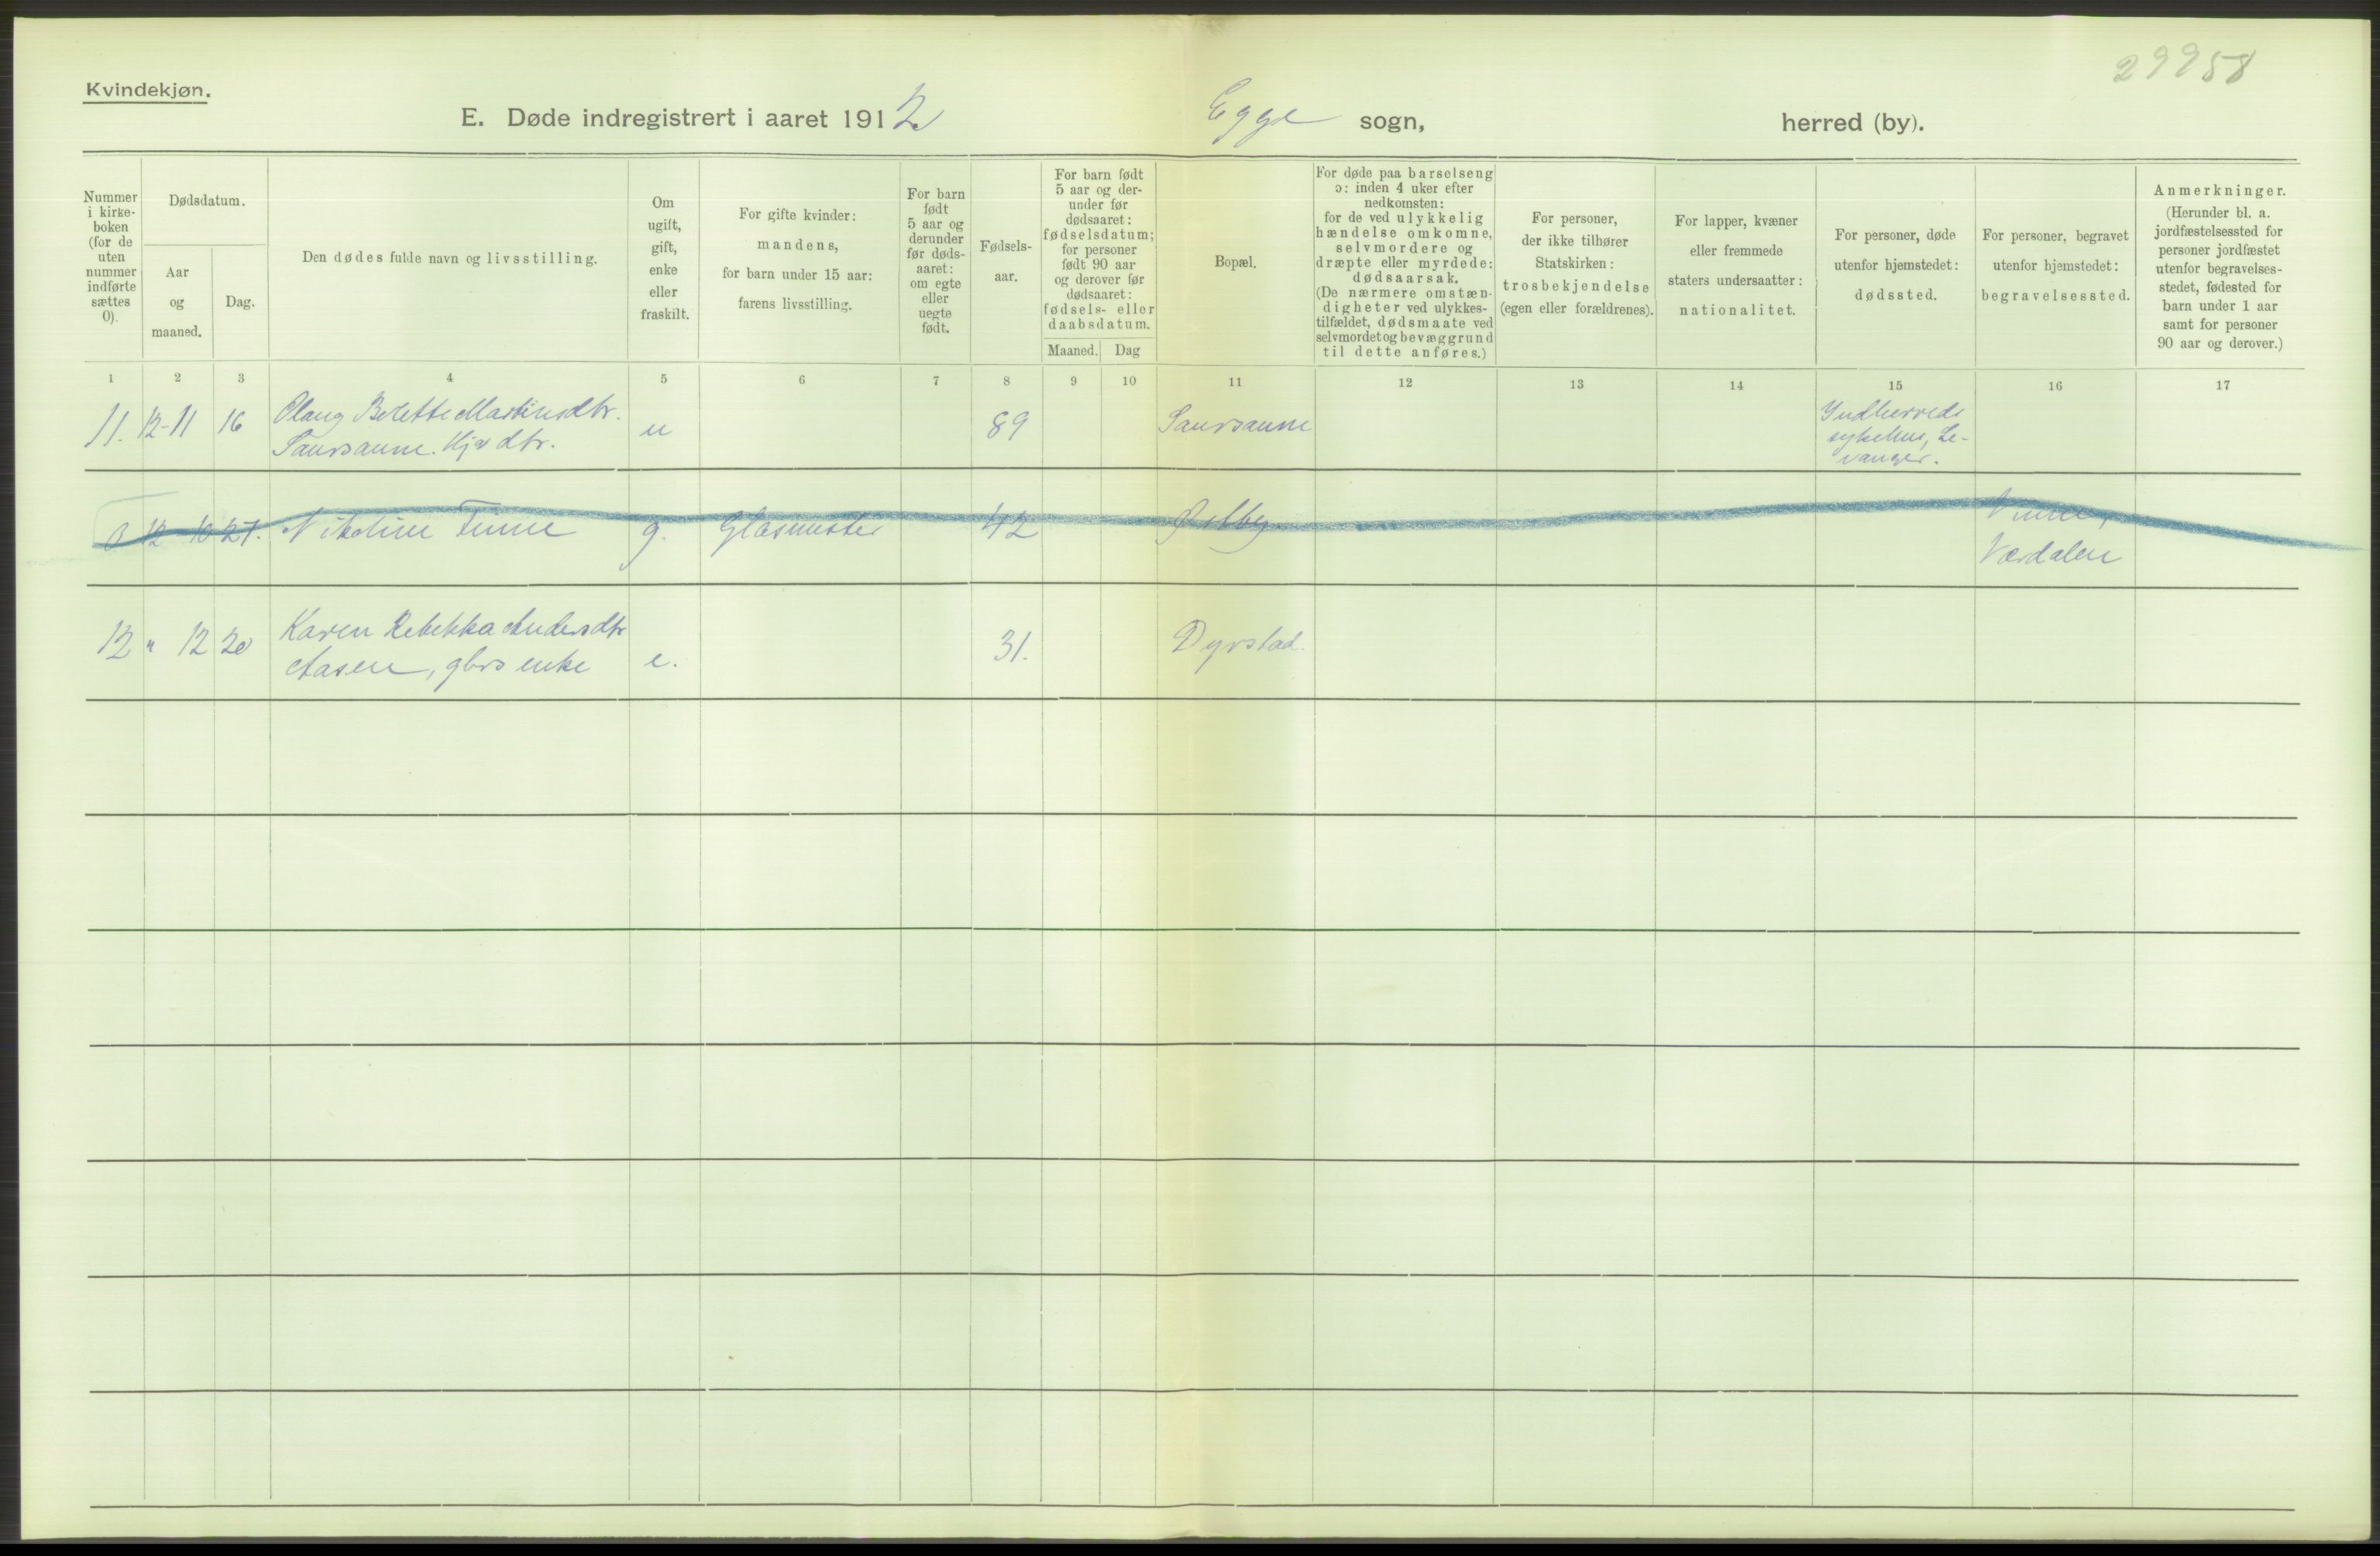 29958
Kvindekjøn.
E. Døde indregistrert i aaret 1912 Egge sogn, herred (by).
Nummer
i kirke-
boken
(for de
uten
nummer
indførte
sættes
0).
Dødsdatum.
Aar
og
maaned.
Dag.
Den dødes fulde navn og livsstilling.
Om
ugift,
gift,
enke
eller
fraskilt.
For gifte kvinder:
mandens,
for barn under 15 aar:
farens livsstilling.
For barn
født
5 aar og
derunder
før døds-
aaret:
om egte
eller
uegte
født.
Fødsels-
aar.
For barn født
5 aar og der-
under før
dødsaaret:
fødselsdatum;
for personer
født 90 aar
og derover før
dødsaaret:
fødsels- eller
daabsdatum.
Maaned. Dag
Bopæl.
For døde paa barselseng
ɔ: inden 4 uker efter
nedkomsten:
for de ved ulykkelig
hændelse omkomne,
selvmordere og
dræpte eller myrdede:
dødsaarsak.
(De nærmere omstæn-
digheter ved ulykkes-
tilfældet, dødsmaate ved
selvmordet og bevæggrund
til dette anføres.)
For personer,
der ikke tilhører
Statskirken:
trosbekjendelse
(egen eller forældrenes).
For lapper, kvæner
eller fremmede
staters undersaatter:
nationalitet.
For personer, døde
utenfor hjemstedet:
dødssted.
For personer, begravet
utenfor hjemstedet:
begravelsessted.
Anmerkninger.
(Herunder bl. a.
jordfæstelsessted for
personer jordfæstet
utenfor begravelses-
stedet, fødested for
barn under 1 aar
samt for personer
90 aar og derover.)
1 2 3 4 5 6 7 8 9 10 11 12 13 14 15 16 17
11. 12-11 16 Olaug Berette Martinsdtr.
Saursaune. Kjv dtr.
u 89 Saursaune
Indherreds
sykehus, Le-
vanger.
0 12 10 27. Nikoline Finne g. Glasmester 42 Østby Vinne,
Værdalen
12 " 12 20 Karen Rebekka Andersdtr
Aasen, gbrs enke e. 31. Dyrstad.